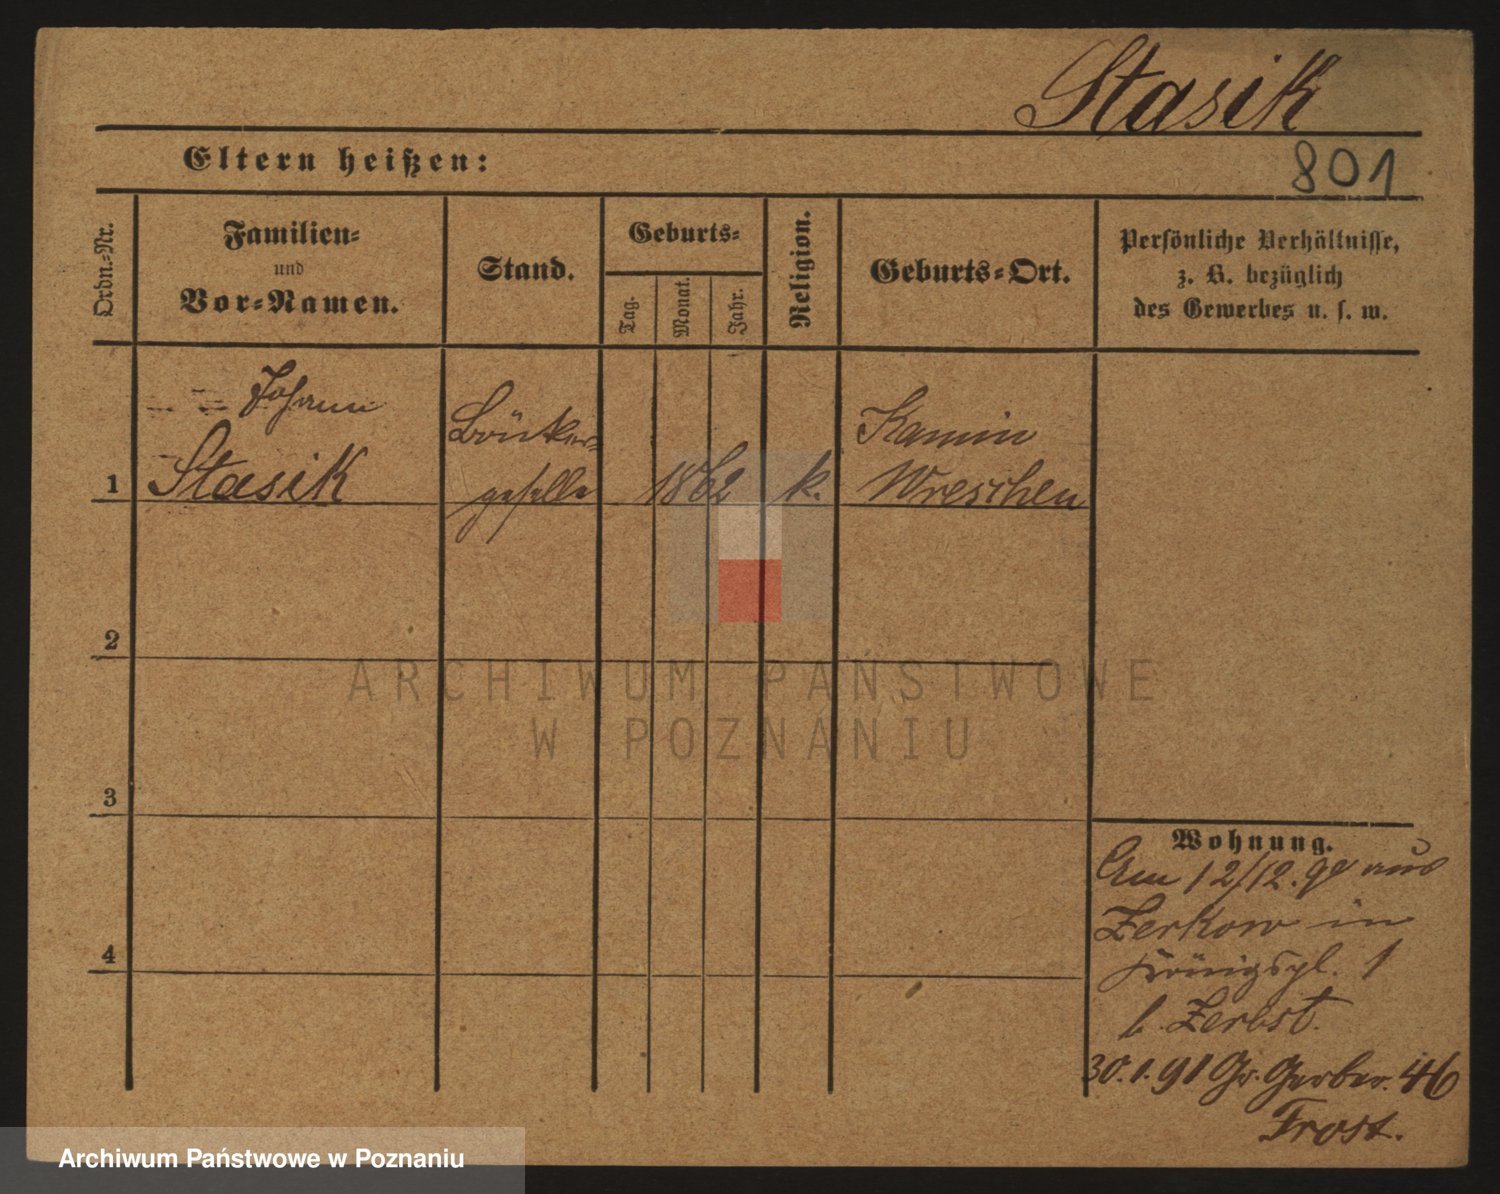 Stasik
Eltern heißen:
801
Ordn.-Nr.
Familien-
und
Vor-Namen.
Stand.
Geburts-
Tag.
Monat.
Jahr.
Religion.
Geburts-Ort.
Persönliche Verhältnisse,
z. B. bezüglich
des Gewerbes u. s. w.
Johann
1 Stasik
geselle
1862
k.
Kamin
Wreschen
2
3
4
Wohnung.
Am 12/12. 90 aus
Zerkow in
Königspl. 1
b. Zerbst.
30.1.91 Gr. Gerber. 46
Frost.
ARCHIWUM PAŃSTWOWE
W POZNANIU
Archiwum Państwowe w Poznaniu